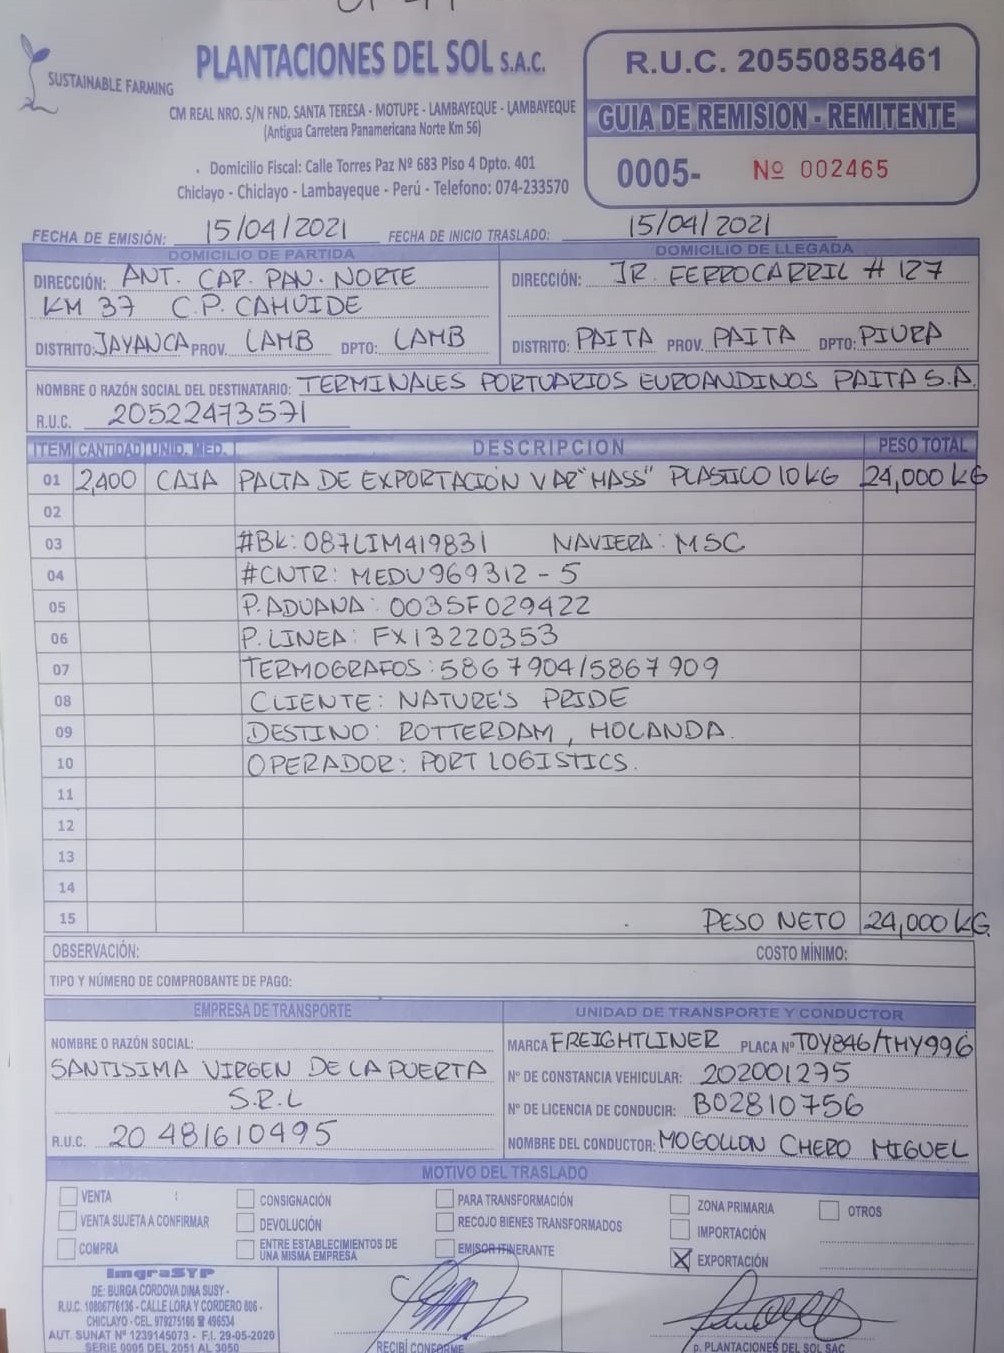 SUSTAINABLE FARMING
PLANTACIONES DEL SOL S.A.C.
CM REAL NRO. S/N FND. SANTA TERESA - MOTUPE - LAMBAYEQUE - LAMBAYEQUE
(Antigua Carretera Panamericana Norte Km 56)
Domicilio Fiscal: Calle Torres Paz Nº 683 Piso 4 Dpto. 401
Chiclayo - Chiclayo - Lambayeque - Perú - Telefono: 074-233570
R.U.C. 20550858461
GUIA DE REMISION - REMITENTE
0005- Nº 002465
FECHA DE EMISIÓN: 15/04/2021 FECHA DE INICIO TRASLADO: 15/04/2021
DOMICILIO DE PARTIDA DOMICILIO DE LLEGADA
DIRECCIÓN: ANT. CAR. PAN. NORTE DIRECCIÓN: JR. FERROCARRIL # 127
KM 37 C.P. CAHUIDE
DISTRITO: JAYANCA PROV. LAMB DPTO: LAMB DISTRITO: PAITA PROV. PAITA DPTO: PIURA
NOMBRE O RAZÓN SOCIAL DEL DESTINATARIO: TERMINALES PORTUARIOS EUROANDINOS PAITA S.A.
R.U.C. 20522473571
ITEM CANTIDAD UNID. MED. DESCRIPCION PESO TOTAL
01 2,400 CAJA PALTA DE EXPORTACIÓN VAR "HASS" PLASTICO 10 KG 24,000 KG
02
03 #BK: 087LIM419831 NAVIERA: MSC
04 #CNTR: MEDU969312-5
05 P. ADUANA: 0035F029422
06 P. LINEA: FX13220353
07 TERMOGRAFOS: 5867904/5867909
08 CLIENTE: NATURE'S PRIDE
09 DESTINO: ROTTERDAM, HOLANDA.
10 OPERADOR: PORT LOGISTICS.
11
12
13
14
15 PESO NETO 24,000 KG.
OBSERVACIÓN: COSTO MÍNIMO:
TIPO Y NÚMERO DE COMPROBANTE DE PAGO:
EMPRESA DE TRANSPORTE UNIDAD DE TRANSPORTE Y CONDUCTOR
NOMBRE O RAZÓN SOCIAL: MARCA FREIGHTLINER PLACA Nº TDY846/THY996
SANTISIMA VIRGEN DE LA PUERTA Nº DE CONSTANCIA VEHICULAR: 202001275
S.R.L Nº DE LICENCIA DE CONDUCIR: B02810756
R.U.C. 20481610495 NOMBRE DEL CONDUCTOR: MOGOLLON CHERO MIGUEL
MOTIVO DEL TRASLADO
VENTA CONSIGNACIÓN PARA TRANSFORMACIÓN ZONA PRIMARIA OTROS
VENTA SUJETA A CONFIRMAR DEVOLUCIÓN RECOJO BIENES TRANSFORMADOS IMPORTACIÓN
COMPRA ENTRE ESTABLECIMIENTOS DE EMISOR ITINERANTE X EXPORTACIÓN
UNA MISMA EMPRESA
ImgraSYP
DE: BURGA CORDOVA DINA SUSY -
R.U.C. 10806776136 - CALLE LORA Y CORDERO 806 -
CHICLAYO - CEL. 979275186 ☎ 496534
AUT. SUNAT Nº 1239145073 - F.I. 29-05-2020
SERIE 0005 DEL 2051 AL 3050
RECIBÍ CONFORME
p. PLANTACIONES DEL SOL SAC